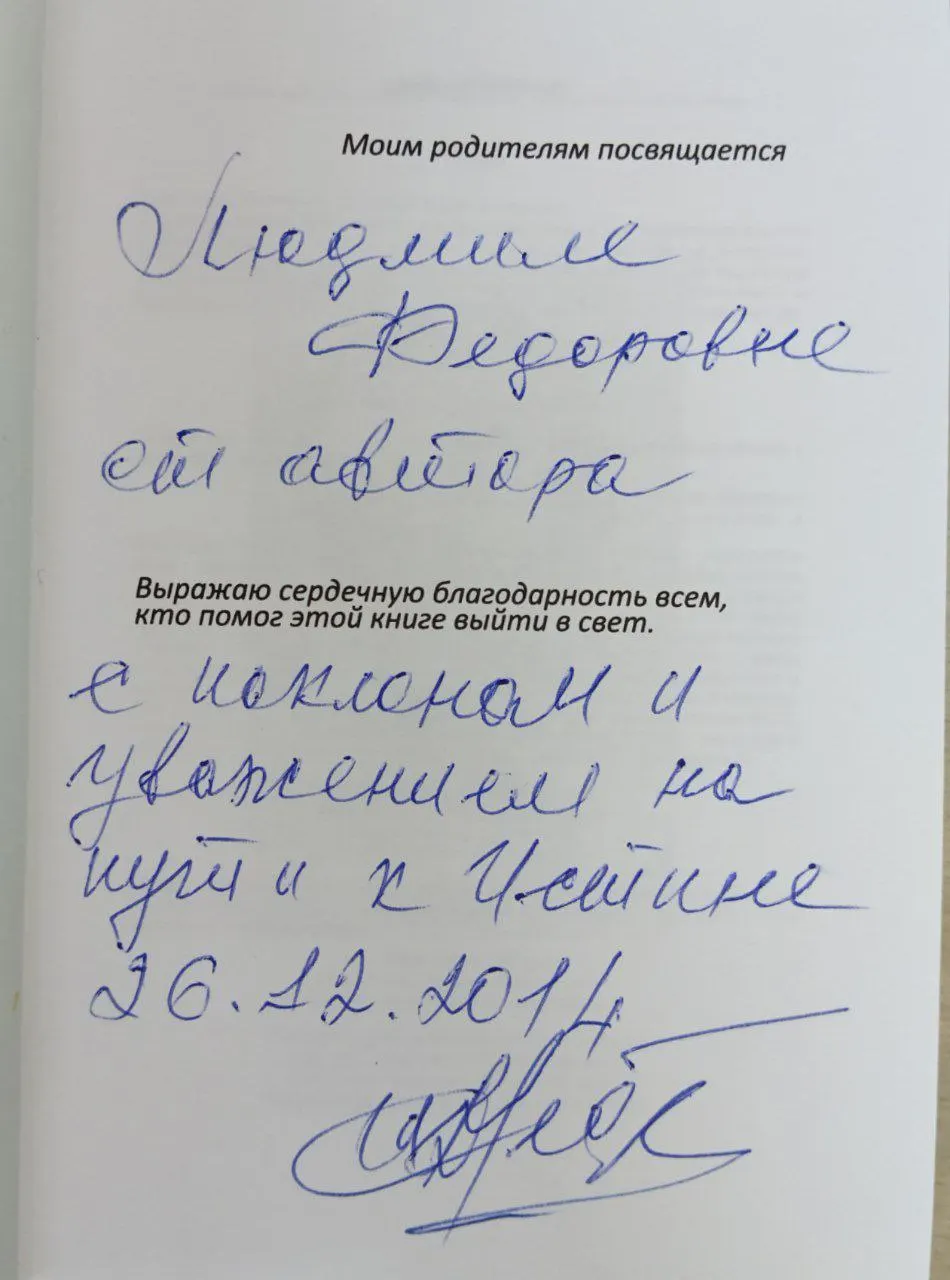 Моим родителям посвящается
Людмиле
Федоровне
от автора
Выражаю сердечную благодарность всем,
кто помог этой книге выйти в свет.
с поклоном и
уважением на
пути к Истине
26.12.2014